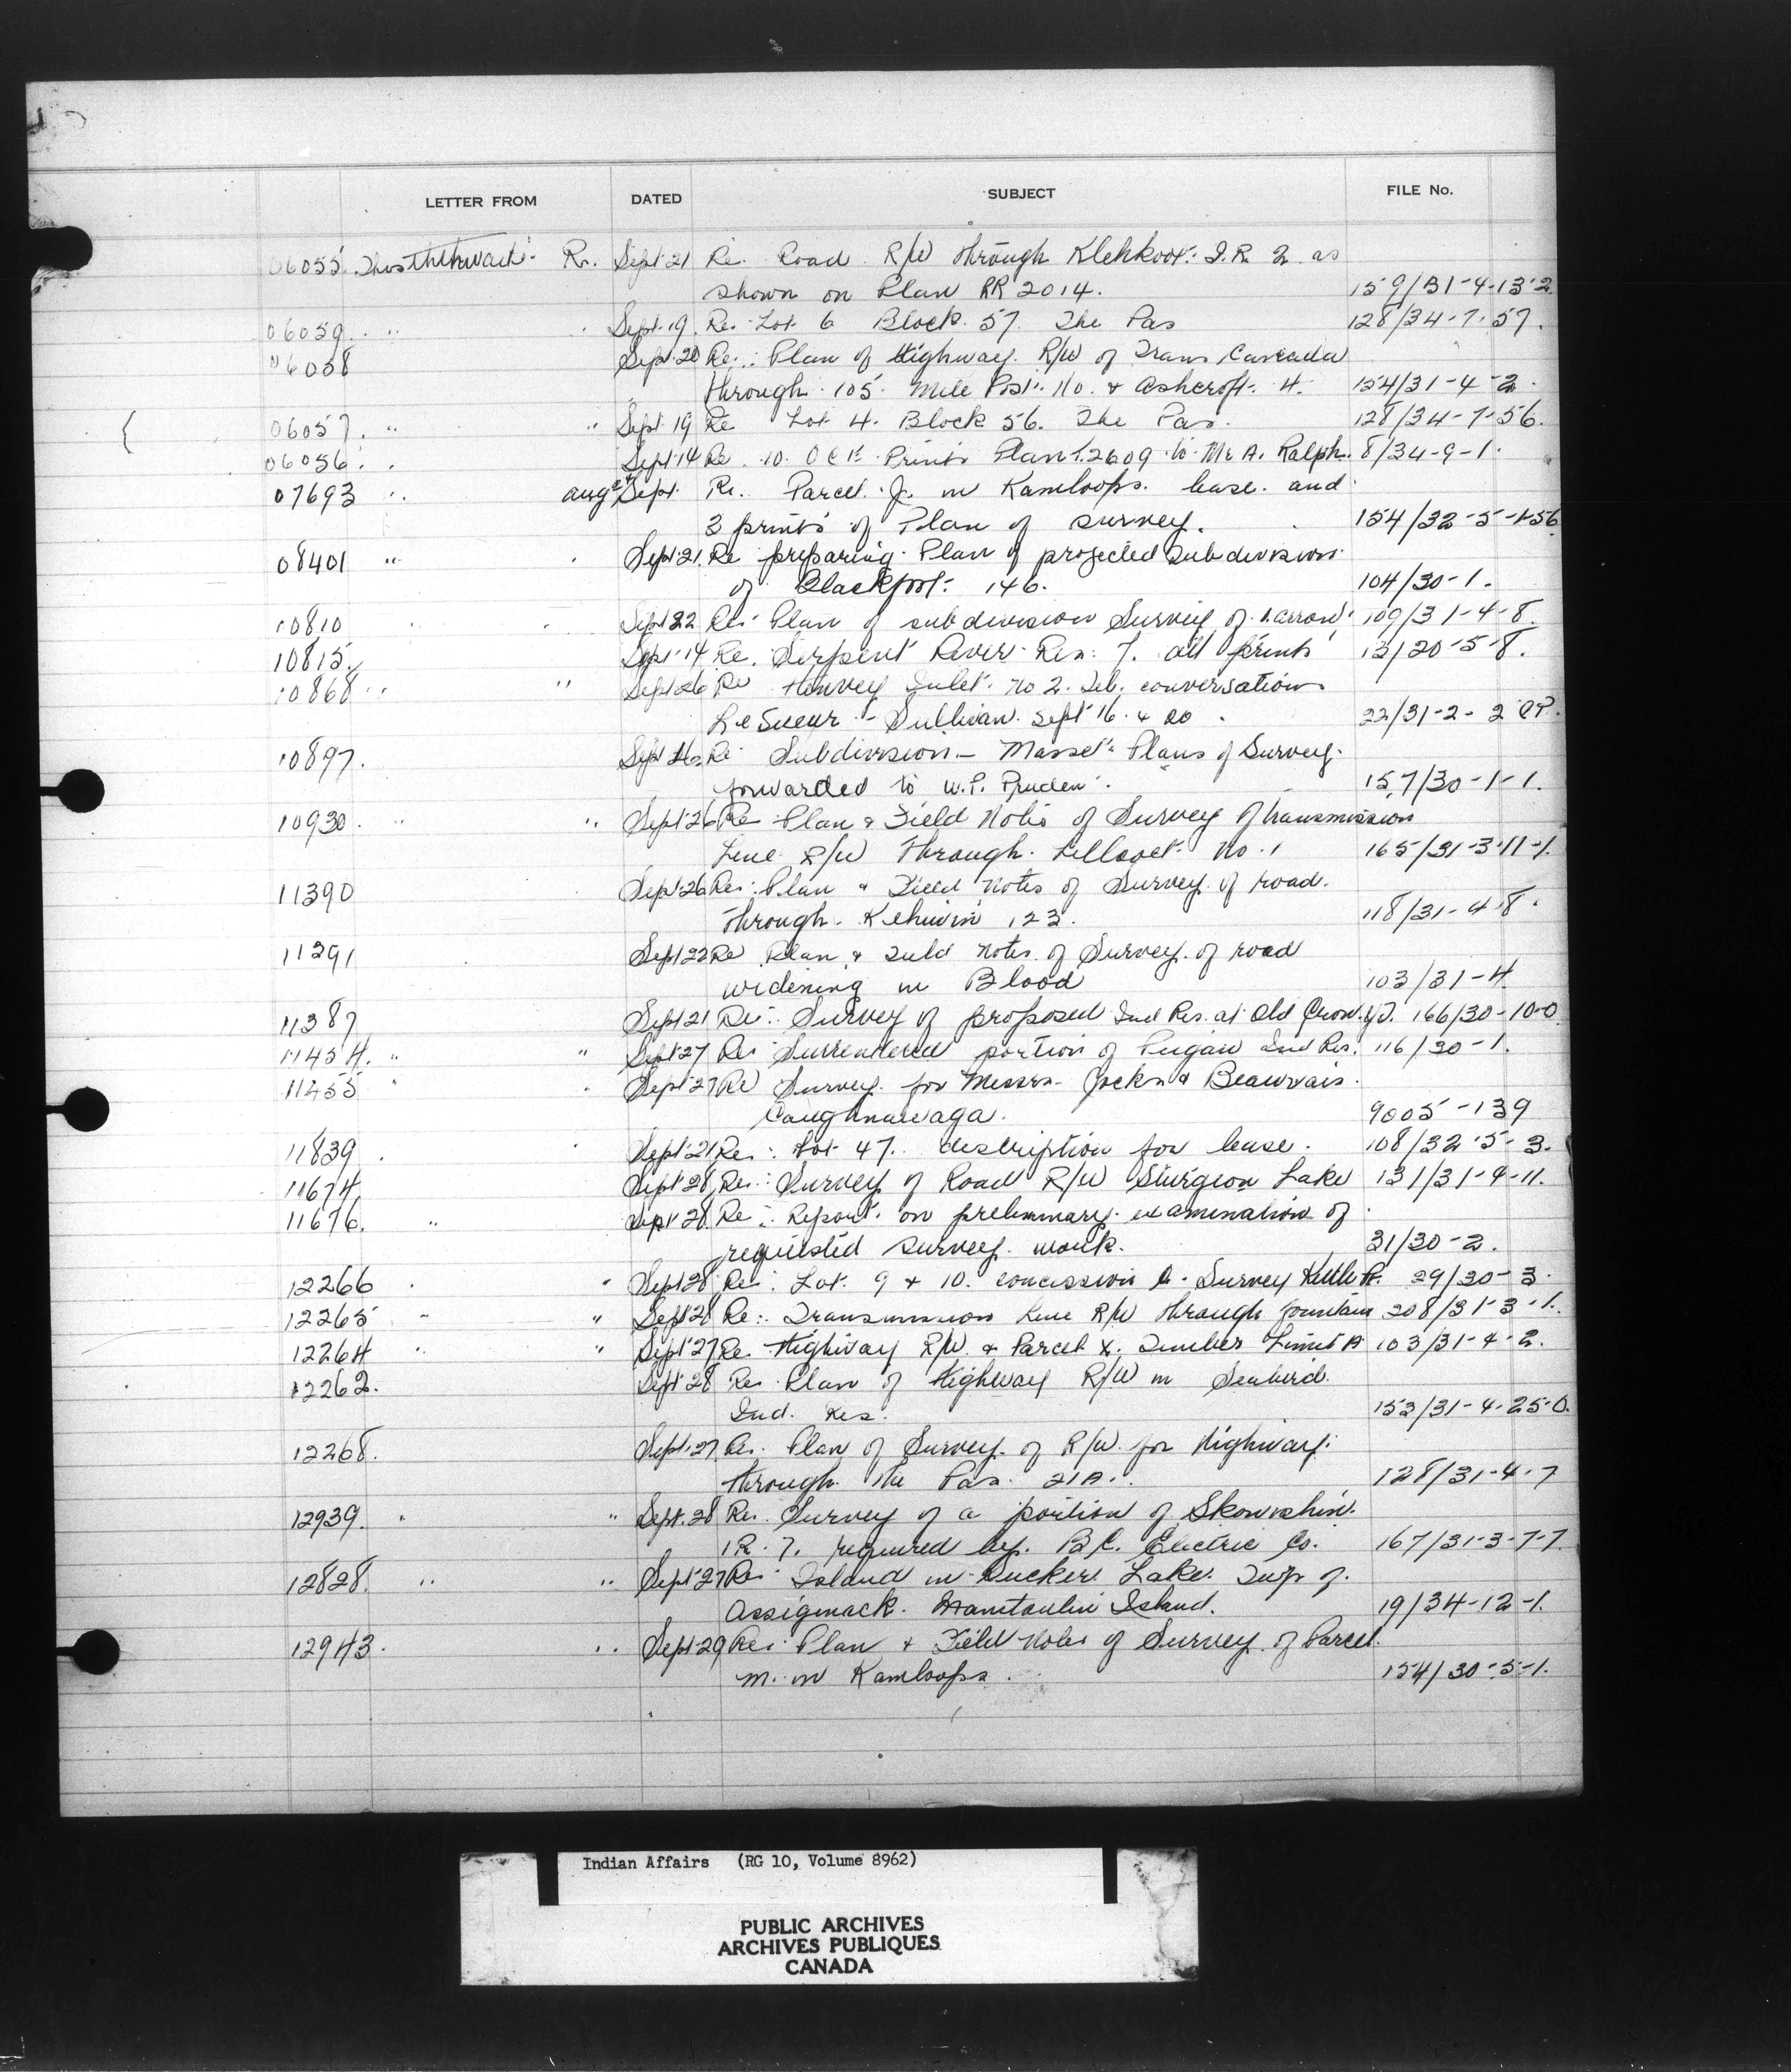 LETTER FROM DATED SUBJECT FILE No.
06055 R. Sept 21 Re. Road R/W through Klehkoot I.R. 2 as
shown on Plan RR 2014. 159/31-4-13-2
06059 " Sept 19 Re: Lot 6 Block 57 The Pas 128/34-7-57.
06058 Sept 20 Re: Plan of Highway R/W of Trans Canada
through 105 Mile Post No. & Ashcroft 4. 154/31-4-2.
06057 " " Sept 19 Re Lot 4. Block 56. The Pas. 128/34-7-56.
06056 " Sept 14 Re 10 Prints Plan T.2609 to Mr A. Ralph. 8/34-9-1.
07693 " Aug Sept. Re. Parcel J. in Kamloops lease and
3 prints of Plan of survey. 154/32-5-1-56
08401 " Sept 21. Re preparing Plan of projected Subdivision
of Blackfoot 146. 104/30-1.
10810 Sept 22 Re: Plan of subdivision Survey of 109/31-4-8.
10815. Sept 14 Re. Serpent River Res: 7. all prints 13/20-5-8.
10868 " " Sept 26 Re Henvey Inlet No 2. Tel. conversation
LeSueur - Sullivan. Sept 16 & 20. 22/31-2-2
10897. Sept 26 Re Subdivision - Masset Plans of Survey
forwarded to W.P. Pruden. 157/30-1-1.
10930. " " Sept 26 Re Plan & Field Notes of Survey of transmission
Line R/W through Lillooet No. 1 165/31-3-11-1.
11390 Sept 26 Re: Plan & Field Notes of Survey of road
through Kehiwin 123. 118/31-4-8.
11391 Sept 22 Re Plan & Field Notes of Survey of road
widening in Blood 103/31-4.
11387 Sept 21 Re: Survey of proposed Ind Res. at Old Crow. Y.T. 166/30-10-0
11454. " " Sept 27 Re Surrendered portion of Peigan Ind Res. 116/30-1.
11455 " Sept 27 Re Survey for Messrs. Jocks & Beauvais
Caughnawaga. 9005-139
11839 Sept 21 Re: Lot 47. description for lease. 108/32-5-3.
11674 Sept 28 Re: Survey of Road R/W Sturgeon Lake 131/31-4-11.
11676. " Sept 28 Re: Report on preliminary examination of
requested survey work. 31/30-2.
12266 " Sept 28 Re: Lot 9 & 10. concession Survey Kettle Pt. 29/30-3.
12265 " " Sept 28 Re: Transmission Line R/W through Fountain 208/31-3-1.
12264 " " Sept 27 Re. Highway R/W & Parcel X. Timber Limit A 103/31-4-2.
12262. Sept 28 Re Plan of Highway R/W in Seabird
Ind. Res. 153/31-4-25-0.
12268. Sept. 27 Re. Plan of Survey of R/W for Highway
through The Pas 21A. 128/31-4-7
12939. " " Sept. 28 Re. Survey of a portion of Skowishin
I R. 7. required by B.C. Electric Co. 167/31-3-7-7.
12828. " " Sept 27 Re Island in Tucker Lake Twp of
Assiginack. Manitoulin Island. 19/34-12-1.
12943. " Sept 29 Re: Plan & Field Notes of Survey of Parcel
M. in Kamloops. 154/30-5-1.
Indian Affairs (RG 10, Volume 8962)
PUBLIC ARCHIVES
ARCHIVES PUBLIQUES
CANADA